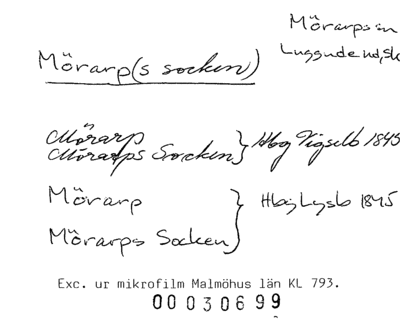 Mörarps sn
Luggude hd, Sk
Mörarp(s socken)
Mörarp
Mörarps Socken } Hbg Vigselb 1845
Mörarp
Mörarps Socken } Hbg Lysb 1845
Exc. ur mikrofilm Malmöhus län KL 793.
00030699